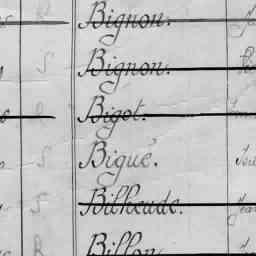 R Bignon.
S Bignon.
R Bigot.
S Bigué.
S Bilheude.
R Billon